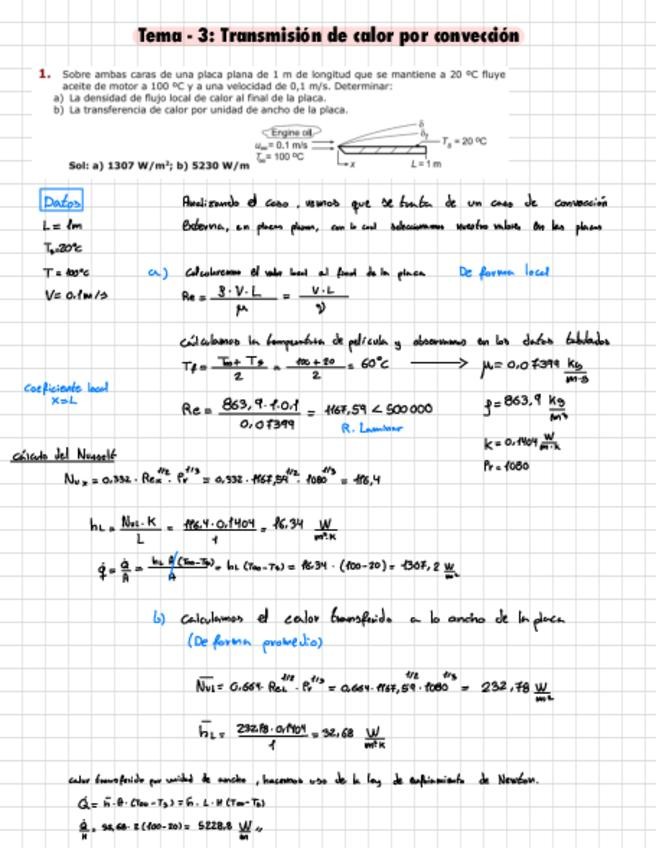 Tema - 3: Transmisión de calor por convección
1. Sobre ambas caras de una placa plana de 1 m de longitud que se mantiene a 20 ºC fluye
aceite de motor a 100 ºC y a una velocidad de 0,1 m/s. Determinar:
a) La densidad de flujo local de calor al final de la placa.
b) La transferencia de calor por unidad de ancho de la placa.
Engine oil
u∞ = 0.1 m/s
T∞ = 100 ºC
δ
δT
Ts = 20 ºC
x
L = 1 m
Sol: a) 1307 W/m²; b) 5230 W/m
Datos
L = 1m
Ts=20ºC
T = 100ºC
V = 0.1 m/s
Analizando el caso, vemos que se trata de un caso de convección
externa, en placas planas, con lo cual seleccionamos nuestro valores en las placas
a) Calcularemos el valor local al final de la placa
De forma local
Re = ρ·V·L / μ = V·L / ν
Calculamos la temperatura de película y observamos en los datos tabulados
Tf = T∞ + Ts / 2 = 100 + 20 / 2 = 60ºC → μ = 0,07399 kg / m·s
Coeficiente local
x=L
Re = 863,9·1·0,1 / 0,07399 = 1167,59 < 500000
R. Laminar
ρ = 863,9 kg / m³
k = 0,1404 W / m·k
Pr = 1080
Cálculo del Nusselt
Nux = 0.332 · Rex^1/2 · Pr^1/3 = 0,332 · 1167,59^1/2 · 1080^1/3 = 116,4
hL = NuL·K / L = 116,4·0,1404 / 1 = 16,34 W / m²·K
q̇ = Q̇ / A = hL A (T∞-Ts) / A = hL (T∞-Ts) = 16.34 · (100-20) = 1307,2 W / m²
b) Calculamos el calor transferido a lo ancho de la placa
(De forma promedio)
NuL = 0,664 · ReL^1/2 · Pr^1/3 = 0,664 · 1167,59^1/2 · 1080^1/3 = 232,78 W / m²
hL = 232,78 · 0,1404 / 1 = 32,68 W / m²K
Calor transferido por unidad de ancho, hacemos uso de la ley de enfriamiento de Newton.
Q̇ = h·A·(T∞-Ts) = h·L·H (T∞-Ts)
Q̇ / H = 32,68 · 2 (100-20) = 5228,8 W / m